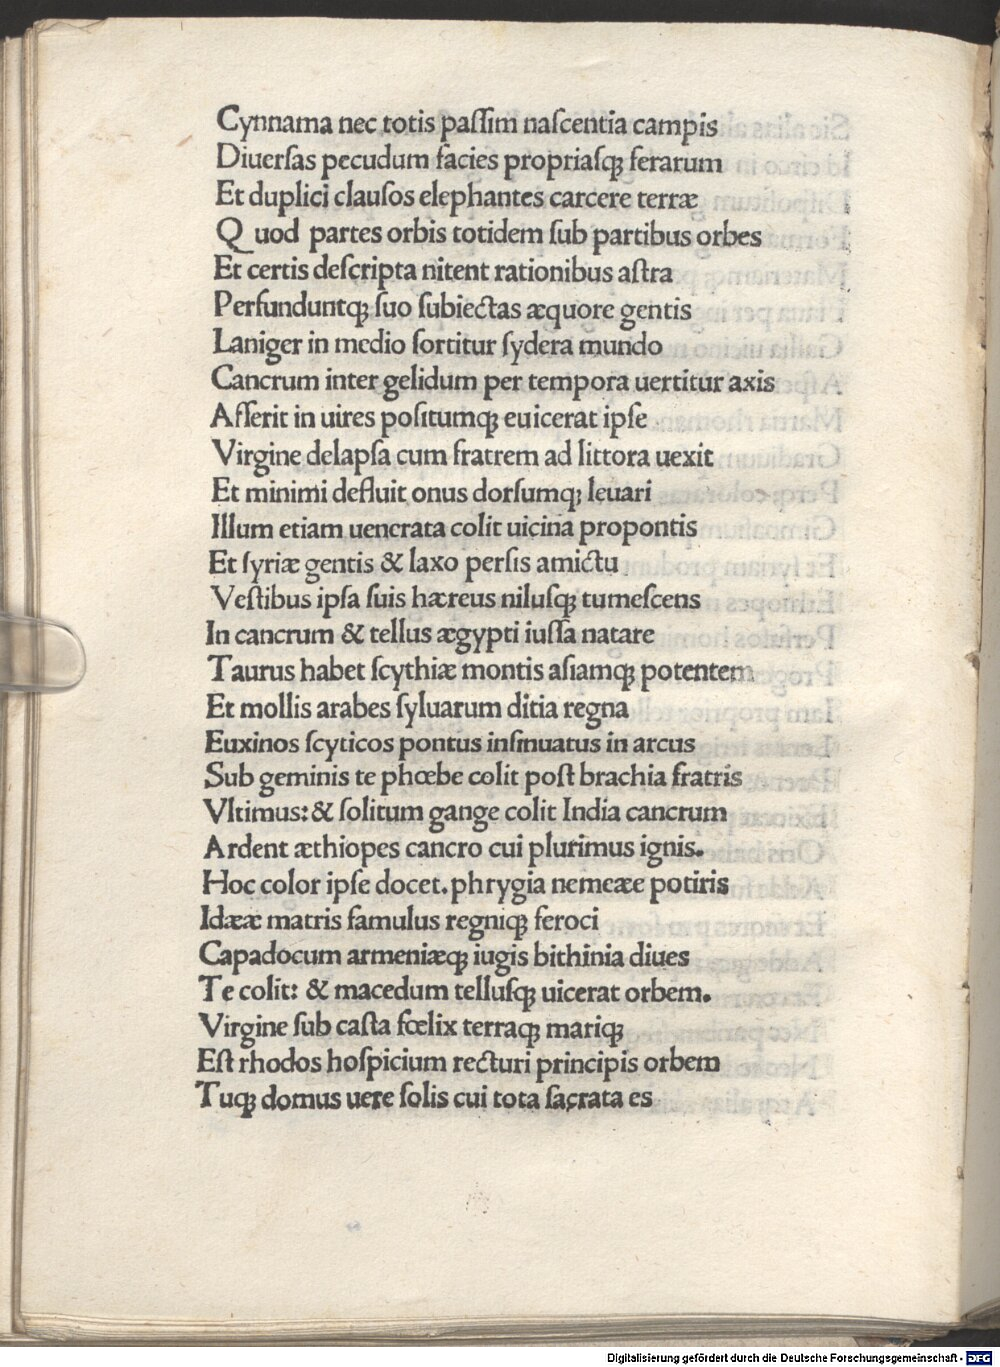 Cynnama nec totis paſſim naſcentia campis
Diuerſas pecudum facies propriaſqꝫ ferarum
Et duplici clauſos elephantes carcere terræ
Quod partes orbis totidem ſub partibus orbes
Et certis deſcripta nitent rationibus aſtra
Perfunduntqꝫ ſuo ſubiectas æquore gentis
Laniger in medio ſortitur ſydera mundo
Cancrum inter gelidum per tempora uertitur axis
Aſſerit in uires poſitumqꝫ euicerat ipſe
Virgine delapſa cum fratrem ad littora uexit
Et minimi defluit onus dorſumqꝫ leuari
Illum etiam uenerata colit uicina propontis
Et ſyriæ gentis & laxo perſis amictu
Veſtibus ipſa ſuis hæreus niluſqꝫ tumeſcens
In cancrum & tellus ægypti iuſſa natare
Taurus habet ſcythiæ montis aſiamqꝫ potentem
Et mollis arabes ſyluarum ditia regna
Euxinos ſcyticos pontus inſinuatus in arcus
Sub geminis te phœbe colit poſt brachia fratris
Vltimus: & ſolitum gange colit India cancrum
Ardent æthiopes cancro cui plurimus ignis.
Hoc color ipſe docet. phrygia nemeæe potiris
Idææ matris famulus regniqꝫ feroci
Capadocum armeniæqꝫ iugis bithinia diues
Te colit: & macedum telluſqꝫ uicerat orbem.
Virgine ſub caſta fœlix terraqꝫ mariqꝫ
Eſt rhodos hoſpicium recturi principis orbem
Tuqꝫ domus uere ſolis cui tota ſacrata es
Digitalisierung gefördert durch die Deutsche Forschungsgemeinschaft - DFG